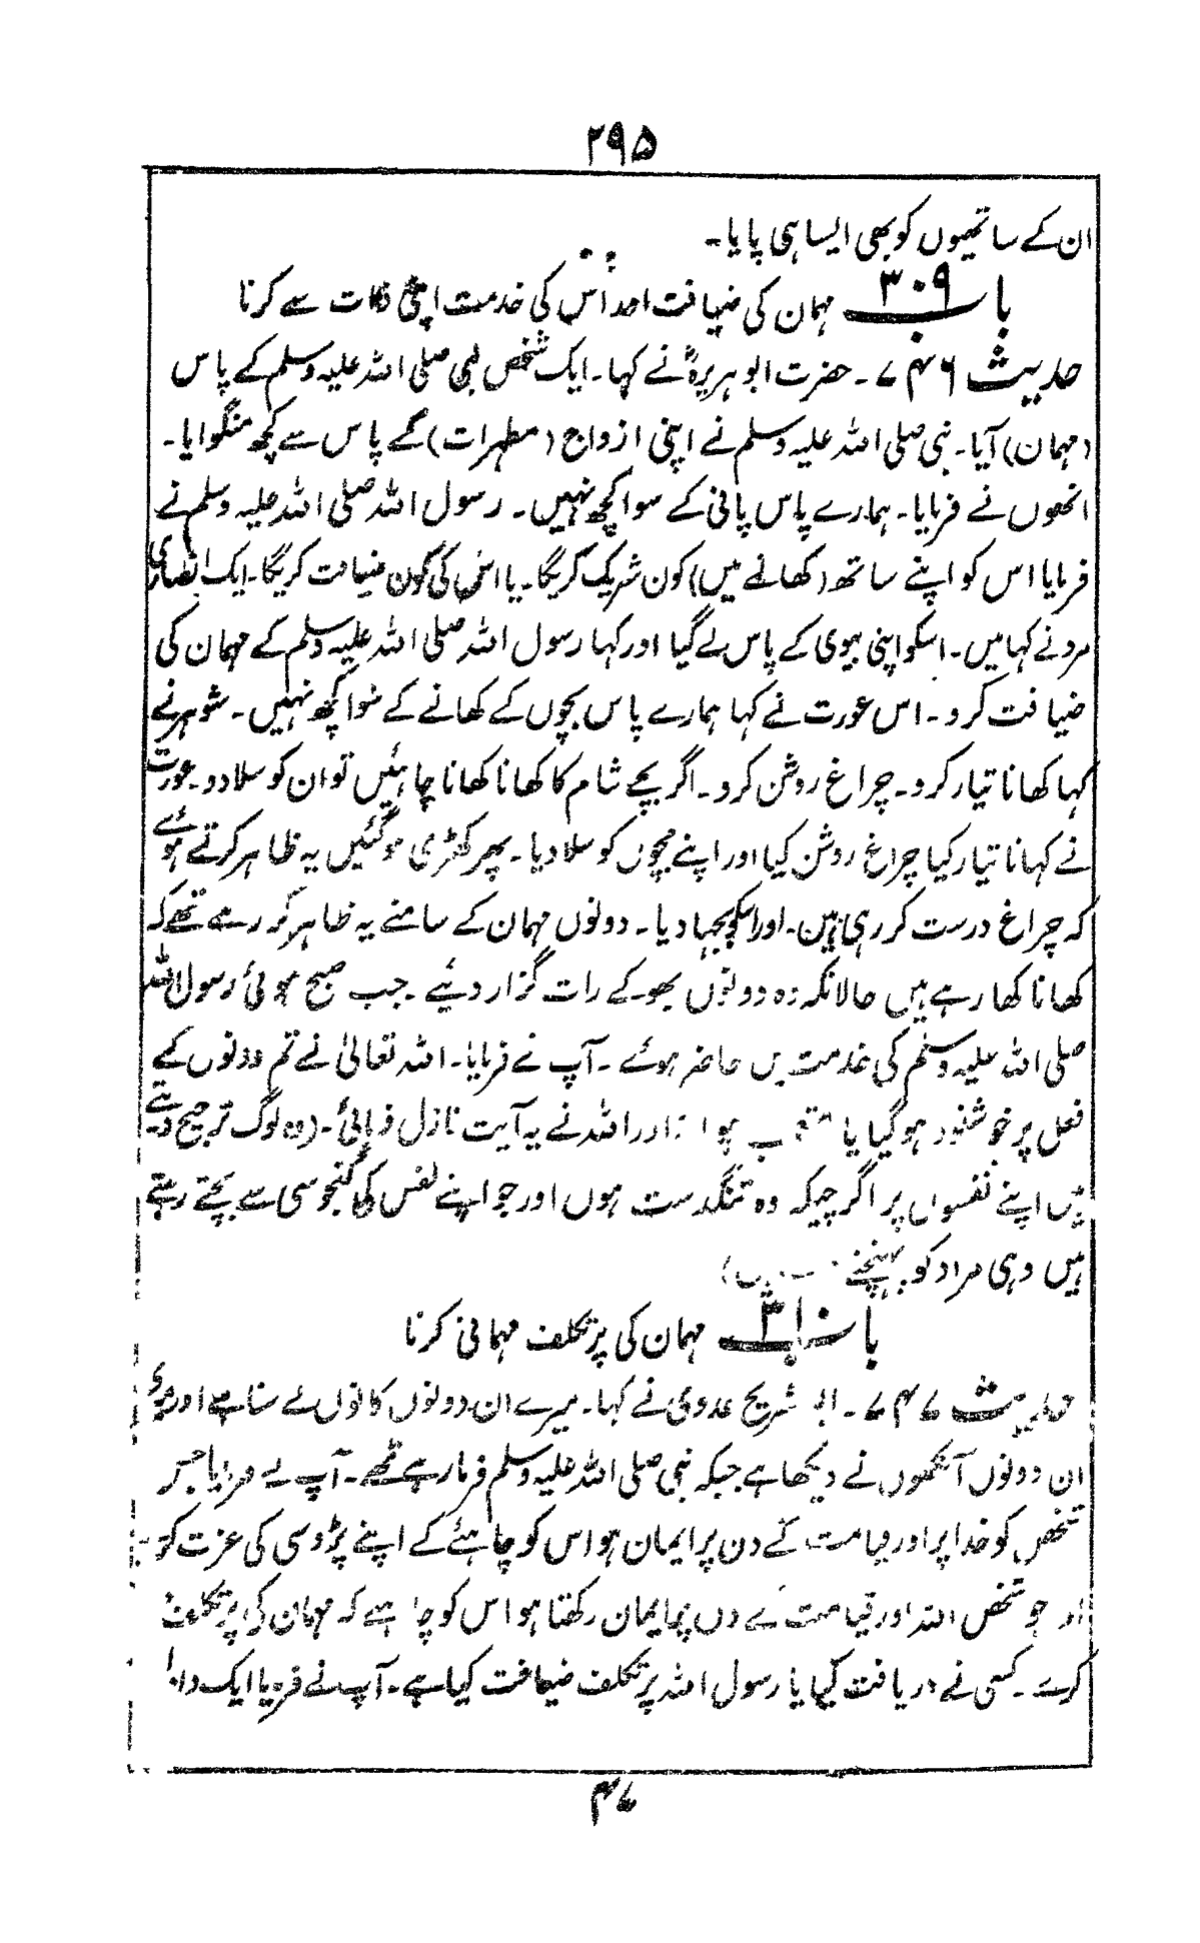 ۲۹۵
ان کے ساتھیوں کو بھی ایسا ہی پایا۔
باب ۳۰۹ مہمان کی ضیافت اور اس کی خدمت اپنی ذات سے کرنا
حدیث ۷۴۶۔ حضرت ابو ہریرہؓ نے کہا۔ ایک شخص نبی صلی اللہ علیہ وسلم کے پاس
(مہمان) آیا۔ نبی صلی اللہ علیہ وسلم نے اپنی ازواج (مطہرات) کے پاس سے کچھ منگوایا۔
انھوں نے فرمایا۔ ہمارے پاس پانی کے سوا کچھ نہیں۔ رسول اللہ صلی اللہ علیہ وسلم نے
فرمایا اس کو اپنے ساتھ (کھانے میں) کون شریک کریگا۔ یا اس کی کون ضیافت کریگا۔ ایک انصاری
مرد نے کہا میں۔ اسکو اپنی بیوی کے پاس لے گیا اور کہا رسول اللہ صلی اللہ علیہ وسلم کے مہمان کی
ضیافت کرو۔ اس عورت نے کہا ہمارے پاس بچوں کے کھانے کے سوا کچھ نہیں۔ شوہر نے
کہا کھانا تیار کرو۔ چراغ روشن کرو۔ اگر بچے شام کا کھانا کھانا چاہئیں تو ان کو سلا دو۔ عورت
نے کہانا تیار کیا چراغ روشن کیا اور اپنے بچوں کو سلا دیا۔ پھر کھڑی ہوگئیں یہ ظاہر کرتے ہوئے
کہ چراغ درست کر رہی ہیں۔ اور اسکو بجہا دیا۔ دونوں مہمان کے سامنے یہ ظاہر کر رہے تھے کہ
کھانا کھا رہے ہیں حالانکہ وہ دونوں بھوکے رات گزار دئیے۔ جب صبح ہوئی رسول اللہ
صلی اللہ علیہ وسلم کی خدمت میں حاضر ہوئے۔ آپ نے فرمایا۔ اللہ تعالیٰ نے تم دونوں کے
فعل پر خوشنود ہوگیا یا متعجب ہوا اور اللہ نے یہ آیت نازل فرمائی۔ (وہ لوگ ترجیح دیتے
ہیں اپنے نفسوں پر اگرچیکہ وہ تنگدست ہوں اور جو اپنے نفس کی کنجوسی سے بچتے رہتے
ہیں وہی مراد کو پہنچتے ہیں)
باب ۳۱۰ مہمان کی پرتکلف مہمانی کرنا
حدیث ۷۴۷۔ ابو شریح عدوی نے کہا۔ میرے ان دونوں کانوں نے سنا ہے اور میری
ان دونوں آنکھوں نے دیکھا ہے جبکہ نبی صلی اللہ علیہ وسلم فرما رہے تھے۔ آپ نے فرمایا جس
شخص کو خدا پر اور قیامت کے دن پر ایمان ہو اس کو چاہئے کے اپنے پڑوسی کی عزت کرے
اور جو شخص اللہ اور قیامت کے دن پر ایمان رکھتا ہو اس کو چاہے کہ مہمان کی پرتکلف
کرے۔ کسی نے دریافت کیا یا رسول اللہ پرتکلف ضیافت کیا ہے۔ آپ نے فرمایا ایک دن
۴۷